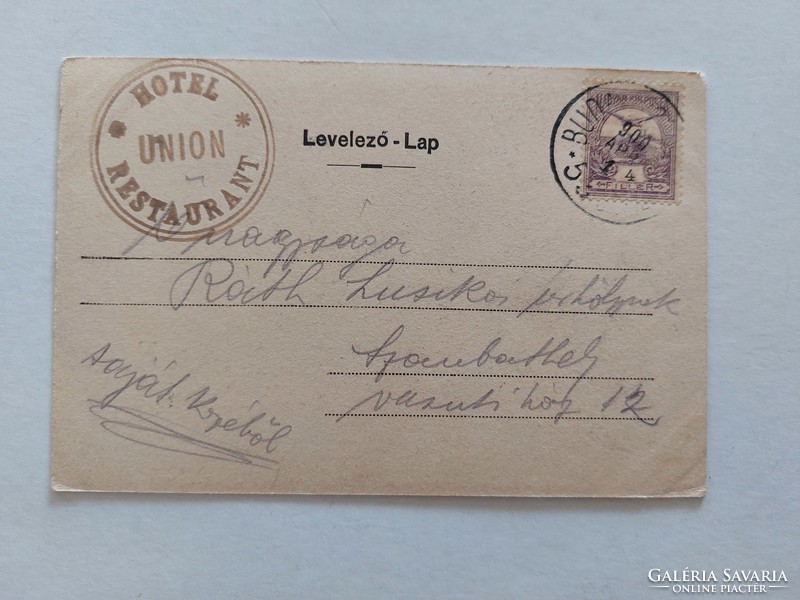 HOTEL
UNION
RESTAURANT
Levelező - Lap
BUDA
900
4
FILLER
5
Nagysága
Ráth Lusika úrhölgynek
Szombathely
vasuti ház 12
saját kezéből
GALÉRIA SAVARIA
ONLINE PIACTÉR